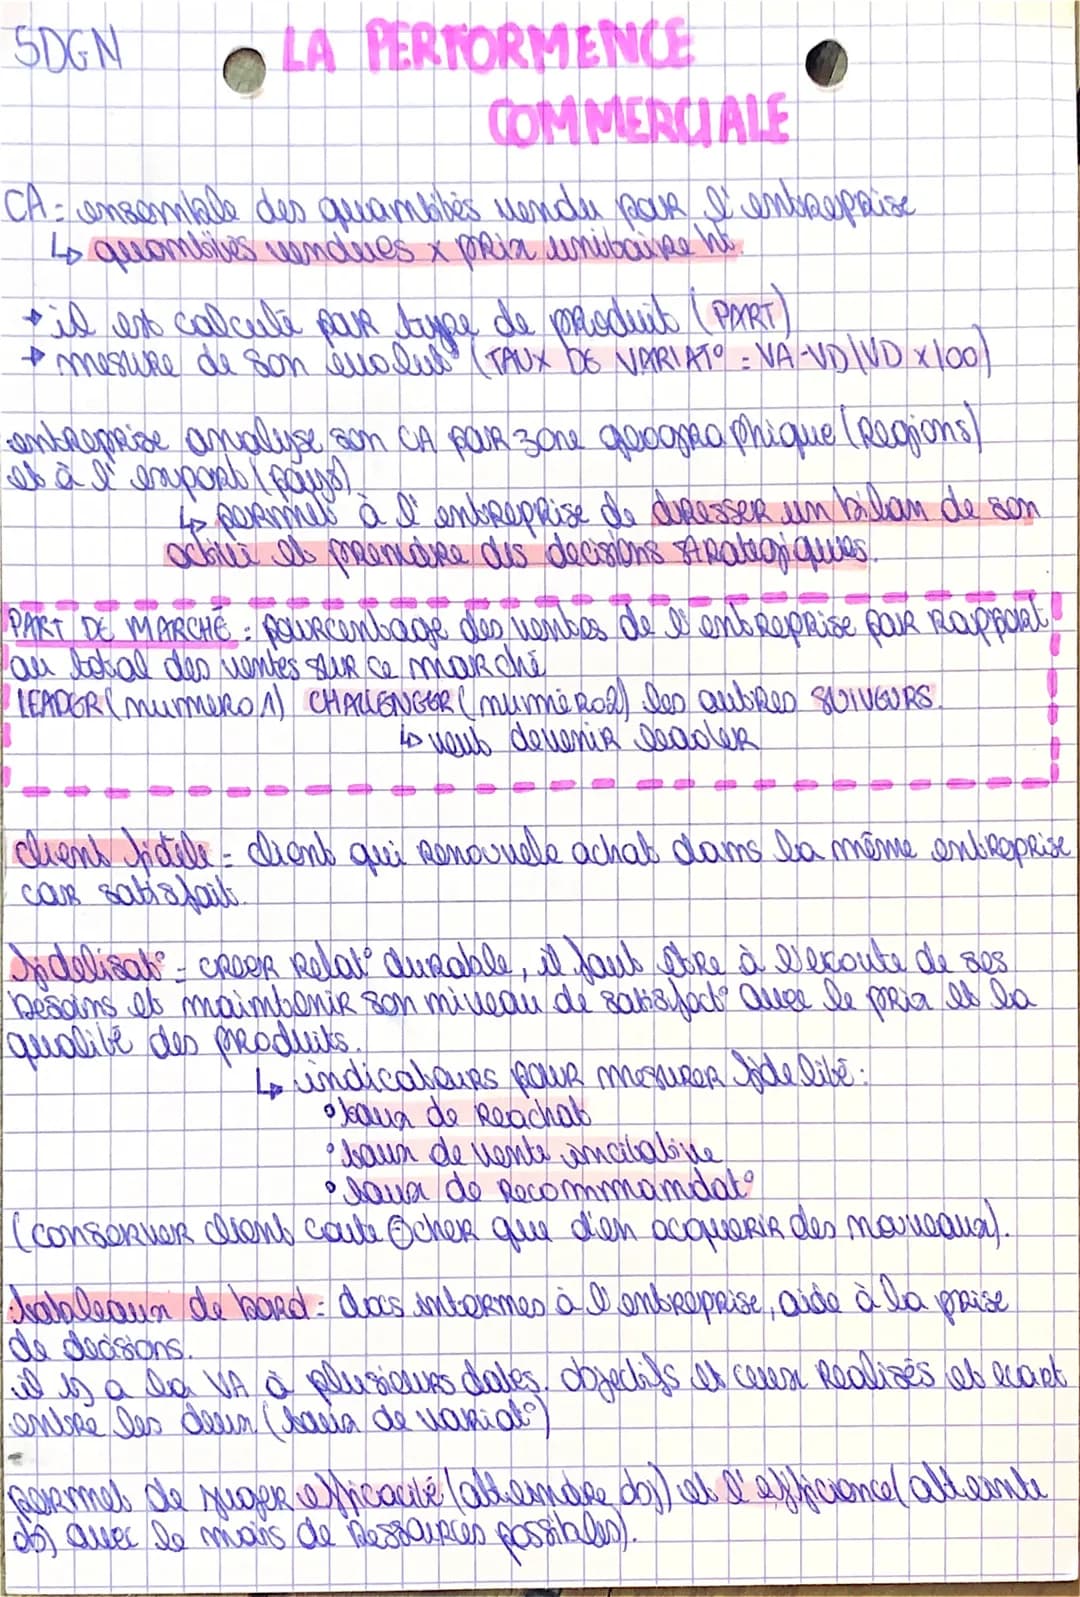 SDGN
LA PERFORMENCE
COMMERCIALE
CA = ensemble des quantités vendu par l'entreprise
↳ quantités vendues x prix unitaire ht.
→ il est calculé par type de produit (PART)
→ mesure de son évolut° (TAUX DE VARIAT° = VA-VD/VD x100)
entreprise analyse son CA par zone géographique (Regions)
et à l'export (pays)
↳ permet à l'entreprise de dresser un bilan de son
activi et prendre des decisions stratégiques.
PART DE MARCHÉ : pourcentage des ventes de l'entreprise par rapport
au total des ventes sur ce marché
LEADER (numero 1) CHALLENGER (numéro2) les autres SUIVEURS.
↳ veut devenir leader
client fidele = client qui renouvelle achat dans la même entreprise
car satisfait.
fidelisat° = creer relat° durable, il faut être à l'ecoute de ses
besoins et maintenir son niveau de satisfact° avec le prix et la
qualité des produits.
↳ indicateurs pour mesurer fidelité :
° taux de reachat
° taux de vente incitative
° taux de recommmandat°
(conserver client coute ⊕ cher que d'en acquerir des nouveaux).
tableaux de bord : docs internes à l'entreprise, aide à la prise
de decisions.
il y a la VA à plusieurs dates, objectifs et ceux realisés et ecart
entre les deux (taux de variat°)
permet de juger efficacité (atteindre obj) et l'efficience (atteinte
obj avec le mois de ressources possibles).